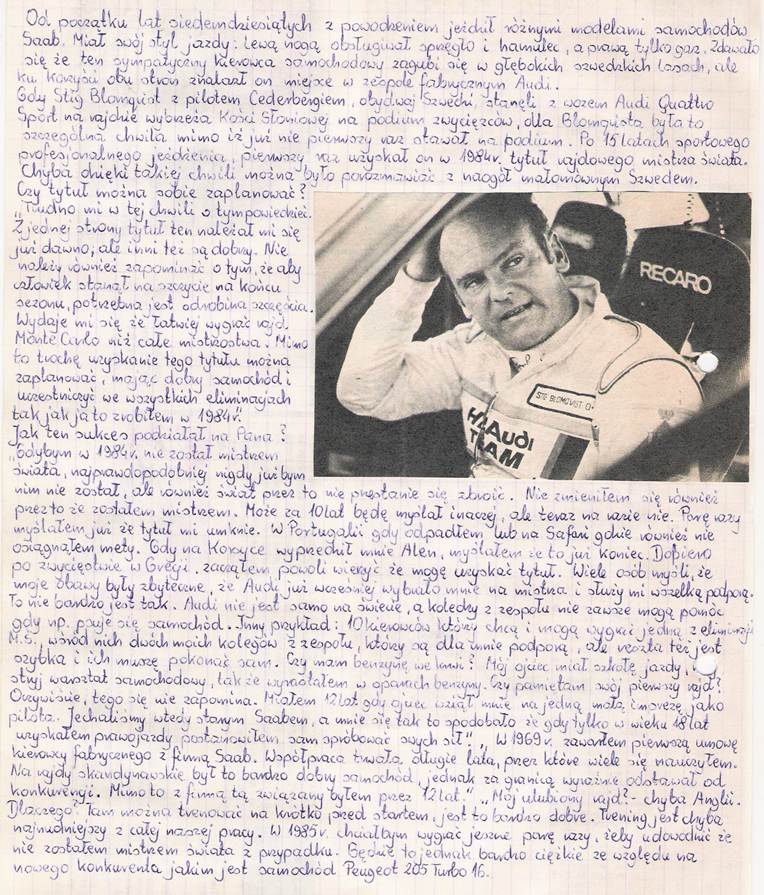 Od początku lat siedemdziesiątych z powodzeniem jeździł różnymi modelami samochodów
Saab. Miał swój styl jazdy: Lewą nogą obsługiwał sprzęgło i hamulec, a prawą tylko gaz. Zdawało
się że ten sympatyczny kierowca samochodowy zagubi się w głębokich szwedzkich lasach, ale
ku korzyści obu stron znalazł on miejsce w zespole fabrycznym Audi.
Gdy Stig Blomquist z pilotem Cederbergiem, obydwaj Szwedzi, stanęli z wozem Audi Quattro
Sport na rajdzie wybrzeża Kości Słoniowej na podium zwycięzców, dla Blomquista była to
szczególna chwila mimo iż już nie pierwszy raz stawał na podium. Po 15 latach sportowego
profesjonalnego jeżdżenia, pierwszy raz uzyskał on w 1984r. tytuł rajdowego mistrza świata.
Chyba dzięki takiej chwili można było porozmawiać z naogół małomównym Szwedem.
Czy tytuł można sobie zaplanować?
"Trudno mi w tej chwili o tym powiedzieć.
Z jednej strony tytuł ten należał mi się
już dawno, ale inni też są dobrzy. Nie
należy również zapominać o tym, że aby
człowiek stanął na szczycie na końcu
sezonu, potrzebna jest odrobina szczęścia.
Wydaje mi się że łatwiej wygrać rajd
Monte Carlo niż całe mistrzostwa. Mimo
to trochę uzyskanie tego tytułu można
zaplanować, mając dobry samochód i
uczestnicząc we wszystkich eliminacjach
tak jak ja to zrobiłem w 1984r."
Jak ten sukces podziałał na Pana?
"Gdybym w 1984r. nie został mistrzem
świata, najprawdopodobniej nigdy już bym
nim nie został, ale również świat przez to nie przestanie się zbroić. Nie zmieniłem się również
przez to że zostałem mistrzem. Może za 10 lat będę myślał inaczej, ale teraz na razie nie. Parę razy
myślałem już że tytuł mi umknie. W Portugalii gdy odpadłem, lub na Safari gdzie również nie
osiągnąłem mety. Gdy na Korsyce wyprzedził mnie Alen, myślałem że to już koniec. Dopiero
po zwycięstwie w Grecji zacząłem powoli wierzyć że mogę uzyskać tytuł. Wiele osób myśli, że
moje obawy były zbyteczne, że Audi już wcześniej wybrało mnie na mistrza i służy mi wszelką podporą.
To nie bardzo jest tak. Audi nie jest samo na świecie, a koledzy z zespołu nie zawsze mogą pomóc
gdy np. psuje się samochód. Inny przykład: 10 kierowców który chcą i mogą wygrać jedną z eliminacji
M.Ś., wśród nich dwóch moich kolegów z zespołu, który są dla mnie podporą, ale reszta też jest
szybka i ich muszę pokonać sam. Czy mam benzynę we krwi? Mój ojciec miał szkołę jazdy,
stryj warsztat samochodowy, tak że wyrastałem w oparach benzyny. Czy pamiętam swój pierwszy rajd?
Oczywiście, tego się nie zapomina. Miałem 12 lat gdy ojciec wziął mnie na jedną małą imprezę jako
pilota. Jechaliśmy wtedy starym Saabem, a mnie się tak to spodobało że gdy tylko w wieku 18 lat
uzyskałem prawo jazdy postanowiłem sam spróbować swych sił". "W 1969r. zawarłem pierwszą umowę
kierowcy fabrycznego z firmą Saab. Współpraca trwała długie lata, przez które wiele się nauczyłem.
Na rajdy skandynawskie był to bardzo dobry samochód, jednak za granicą wyraźnie odstawał od
konkurencji. Mimo to z firmą tą związany byłem przez 12 lat." "Mój ulubiony rajd? - chyba Anglii.
Dlaczego? Tam można trenować na krótko przed startem, jest to bardzo dobre. Trening jest chyba
najnudniejszy z całej naszej pracy. W 1985r. chciałbym wygrać jeszcze parę razy, żeby udowodnić że
nie zostałem mistrzem świata z przypadku. Będzie to jednak bardzo ciężkie ze względu na
nowego konkurenta jakim jest samochód Peugeot 205 Turbo 16.
RECARO
STIG BLOMQVIST O+
Audi
TEAM